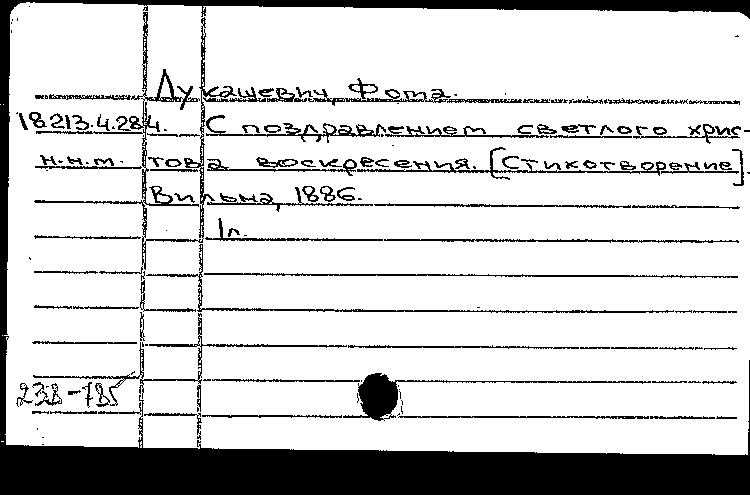 Лукашевич, Фома.
18213.4.284. С поздравлением светлого хрис-
н.н.м. това воскресения. [Стихотворение].
Вильна, 1886.
1л.
238-785